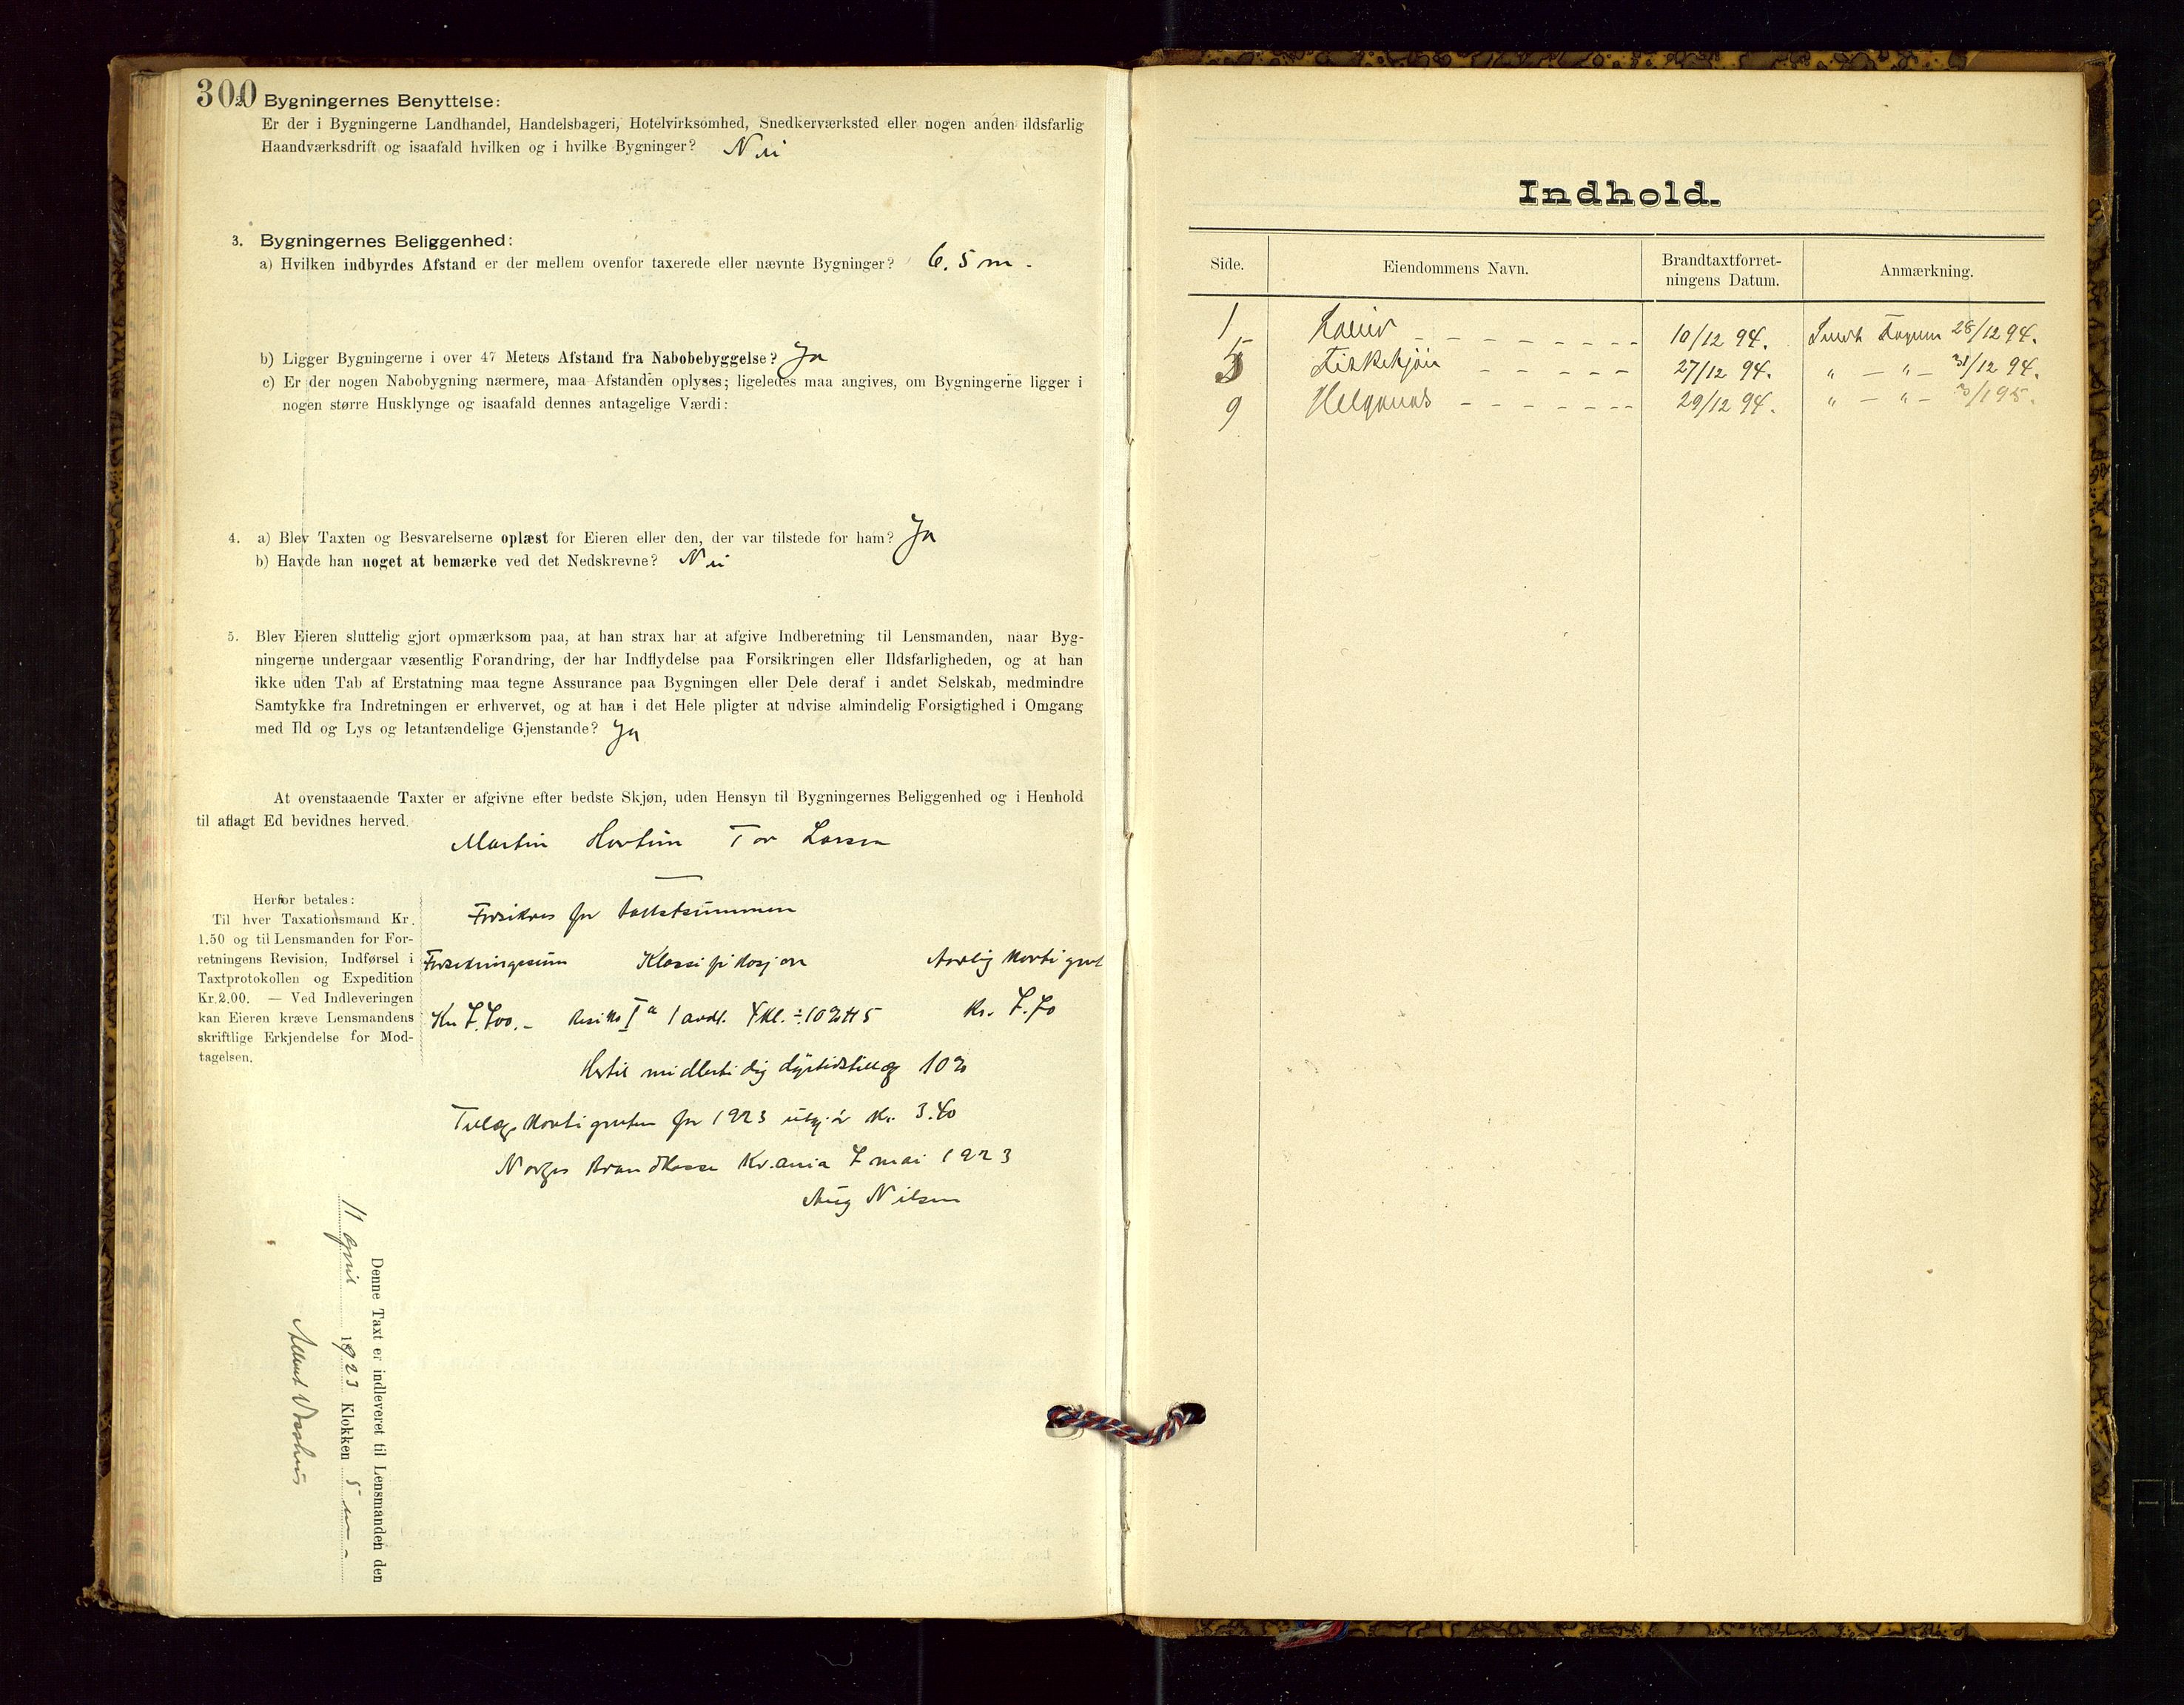 300
2. Bygningernes Benyttelse:
Er der i Bygningerne Landhandel, Handelsbageri, Hotelvirksomhed, Snedkerværksted eller nogen anden ildsfarlig
Haandværksdrift og isaafald hvilken og i hvilke Bygninger? Nei
3. Bygningernes Beliggenhed:
a) Hvilken indbyrdes Afstand er der mellem ovenfor taxerede eller nævnte Bygninger? 6.5 m.
b) Ligger Bygningerne i over 47 Meters Afstand fra Nabobebyggelse? Ja
c) Er der nogen Nabobygning nærmere, maa Afstanden oplyses; ligeledes maa angives, om Bygningerne ligger i
nogen større Husklynge og isaafald dennes antagelige Værdi:
4. a) Blev Taxten og Besvarelserne oplæst for Eieren eller den, der var tilstede for ham? Ja
b) Havde han noget at bemærke ved det Nedskrevne? Nei
5. Blev Eieren sluttelig gjort opmærksom paa, at han strax har at afgive Indberetning til Lensmanden, naar Byg-
ningerne undergaar væsentlig Forandring, der har Indflydelse paa Forsikringen eller Ildsfarligheden, og at han
ikke uden Tab af Erstatning maa tegne Assurance paa Bygningen eller Dele deraf i andet Selskab, medmindre
Samtykke fra Indretningen er erhvervet, og at han i det Hele pligter at udvise almindelig Forsigtighed i Omgang
med Ild og Lys og letantændelige Gjenstande? Ja
At ovenstaaende Taxter er afgivne efter bedste Skjøn, uden Hensyn til Bygningernes Beliggenhed og i Henhold
til aflagt Ed bevidnes herved.
Martin Tor Larsen
Herfor betales:
Til hver Taxationsmand Kr.
1.50 og til Lensmanden for For-
retningens Revision, Indførsel i
Taxtprotokollen og Expedition
Kr. 2.00. — Ved Indleveringen
kan Eieren kræve Lensmandens
skriftlige Erkjendelse for Mod-
tagelsen.
Forsikres for takstsummen
Forsikringssum Klassifikasjon Aarlig kontigent
Risiko Ia 1 avdl. 4 kl. ÷ 10 % H 5
Hertil midlertidig dyrtidstillæg 10 %
Tillægskontigenten for 1923 utgjør kr. 3.40
Norges Brandkasse Kr.ania 7 mai 1923
Aug Nilsen
Denne Taxt er indleveret til Lensmanden den
11 april 1923 Klokken 5
Indhold.
Side. Eiendommens Navn. Brandtaxtforret-
ningens Datum. Anmærkning.
1 10/12 94. 28/12 94.
5 27/12 94. " — " — 31/12 94.
9 Helganæs 29/12 94. " — " — 3/1 95.